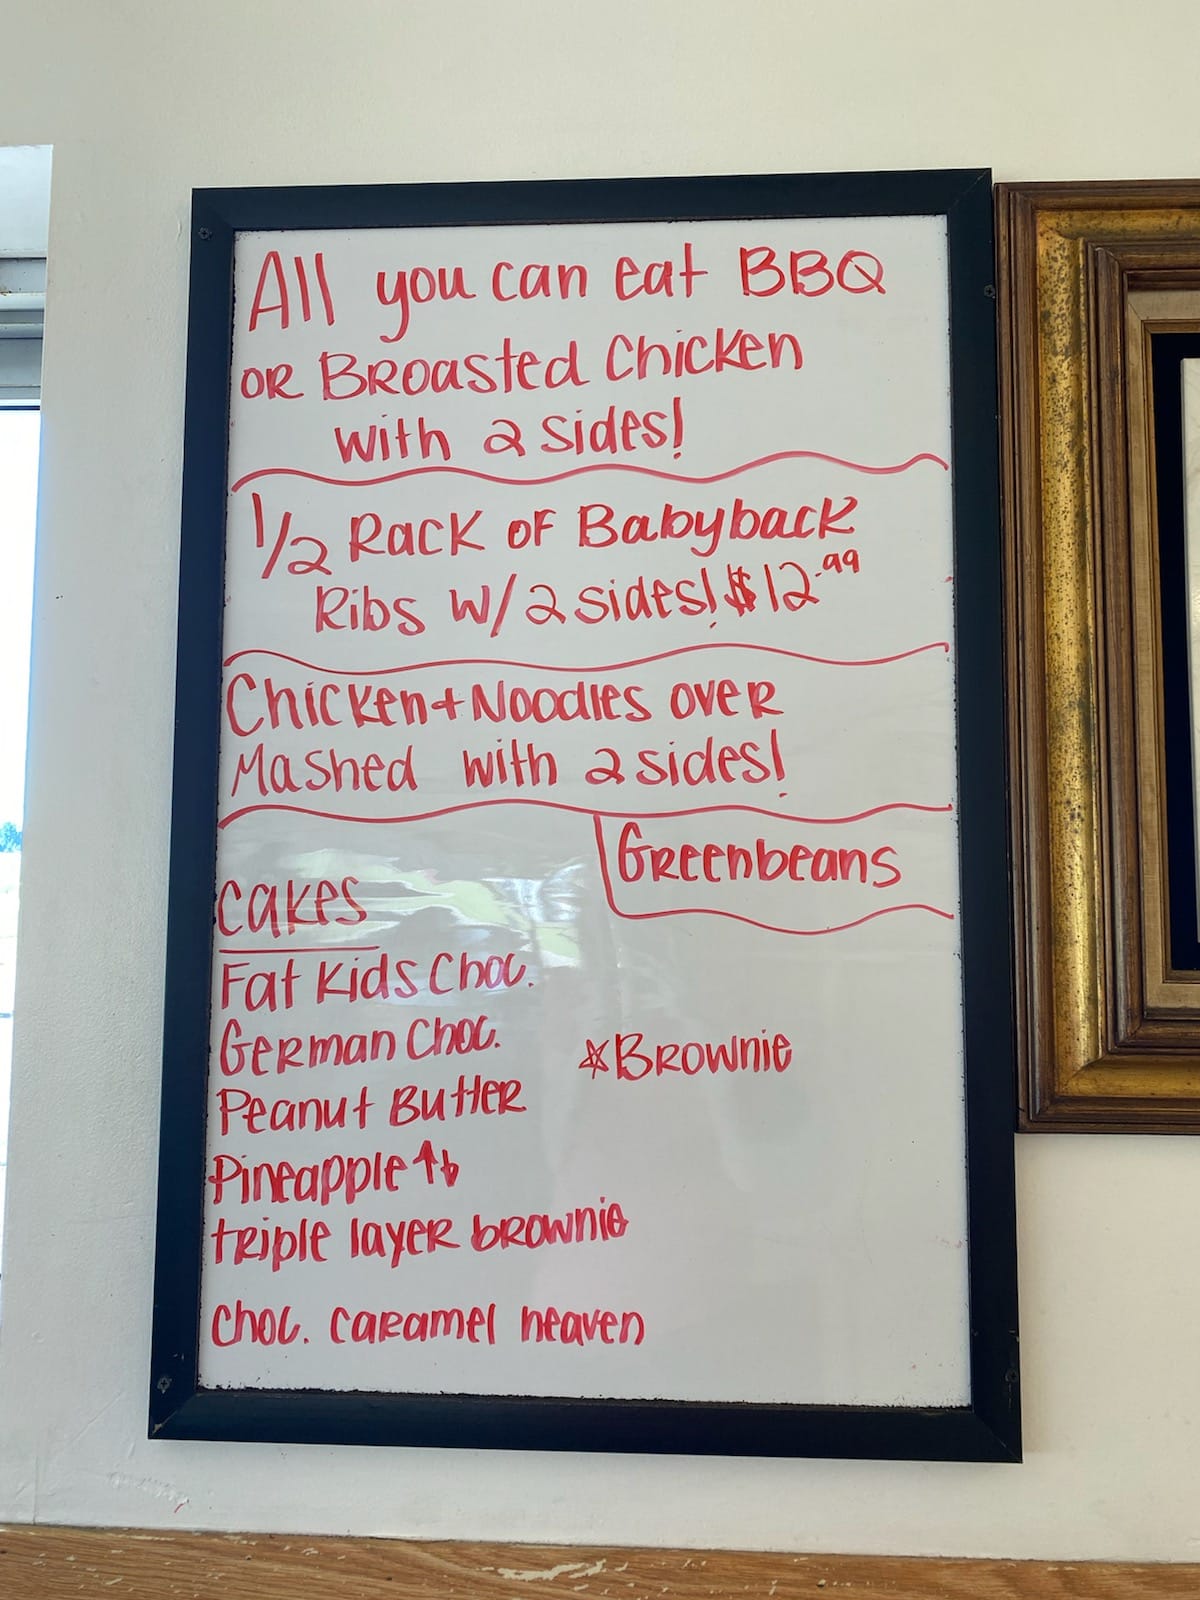 All you can eat BBQ
or Broasted Chicken
with 2 sides!
1/2 Rack of Babyback
Ribs w/ 2 sides! $12.99
Chicken + Noodles over
Mashed with 2 sides!
Greenbeans
Cakes
Fat Kids Choc.
German Choc.
☆Brownie
Peanut Butter
Pineapple ↑↓
triple layer brownie
Choc. caramel heaven